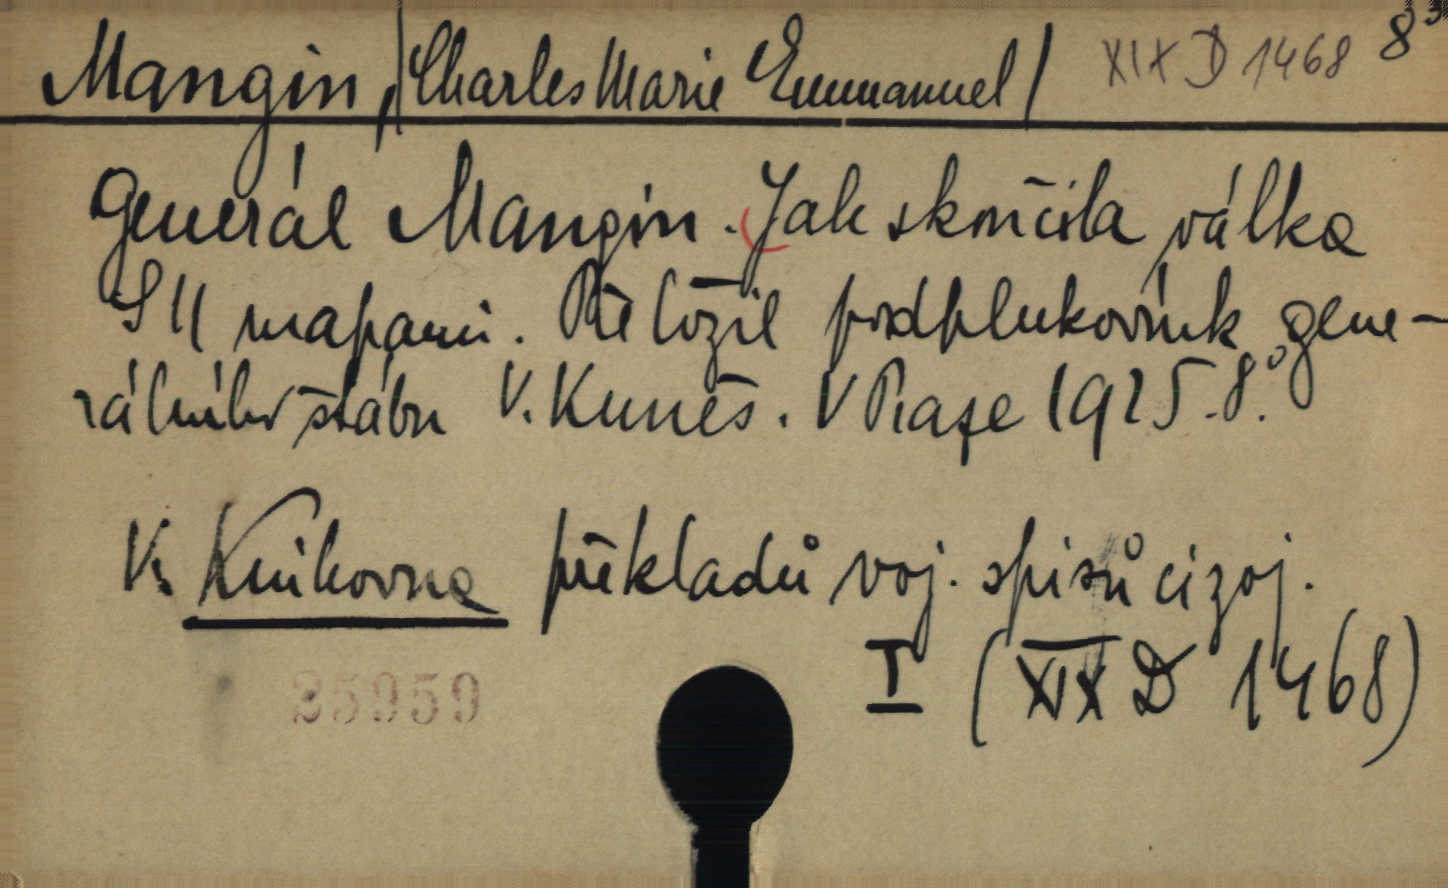 Mangin, /Charles Marie Emmanuel/ XIX D 1468
Generál Mangin. Jak skončila válka
S 11 mapami. Přeložil podplukovník gene-
rálního štábu V. Kuneš. V Praze 1925. 8°.
V. Knihovna překladů voj. spisů cizoj.
I (XIX D 1468)
25959